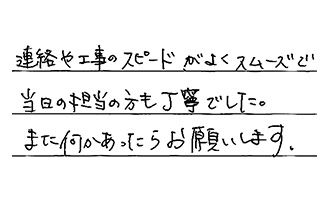 連絡や工事のスピードがよくスムーズで
当日の担当の方も丁寧でした。
また何かあったらお願いします。